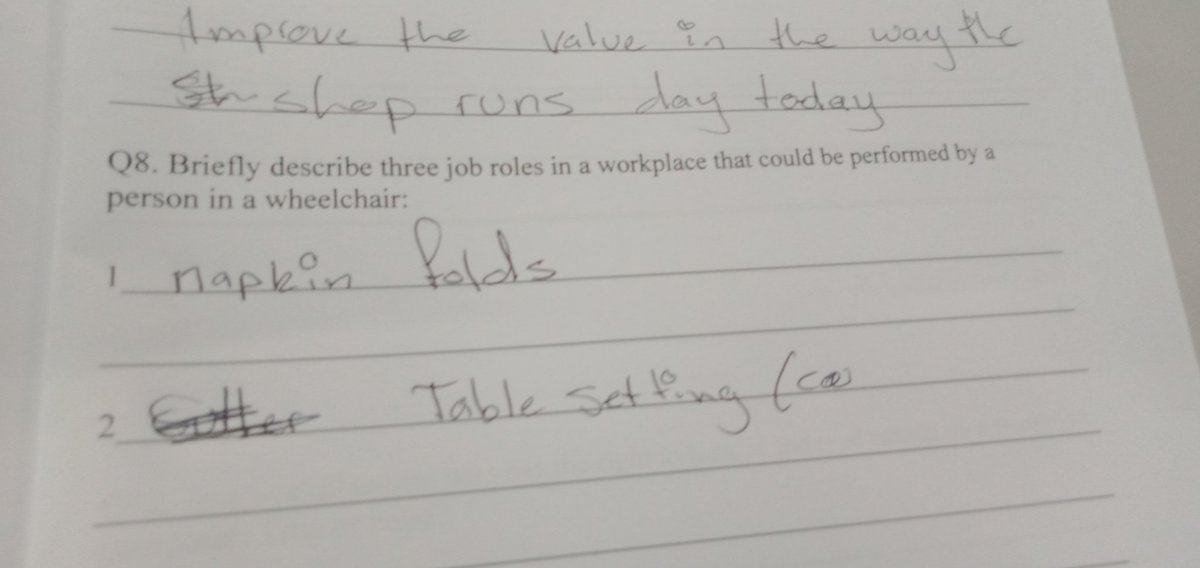 Improve the value in the way the
shop runs day today
Q8. Briefly describe three job roles in a workplace that could be performed by a
person in a wheelchair:
1 napkin folds
2 Table setting (